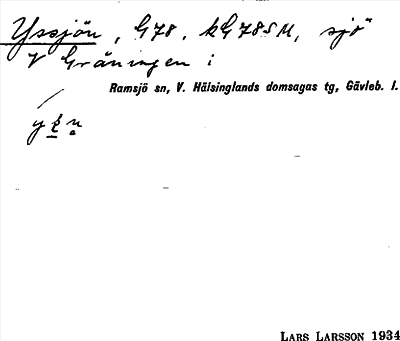 Yssjön, G78. kG78SM, sjö
V Gråningen i
Ramsjö sn, V. Hälsinglands domsagas tg, Gävleb. l.
LARS LARSSON 1934